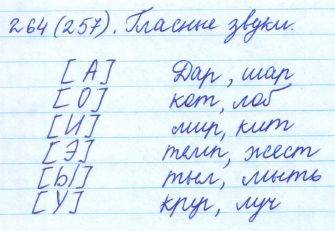 264 (257). Гласные звуки.
[А] Дар, шар
[О] кот, лоб
[И] мир, кит
[Э] темп, жест
[Ы] тыл, мыть
[У] круг, луч